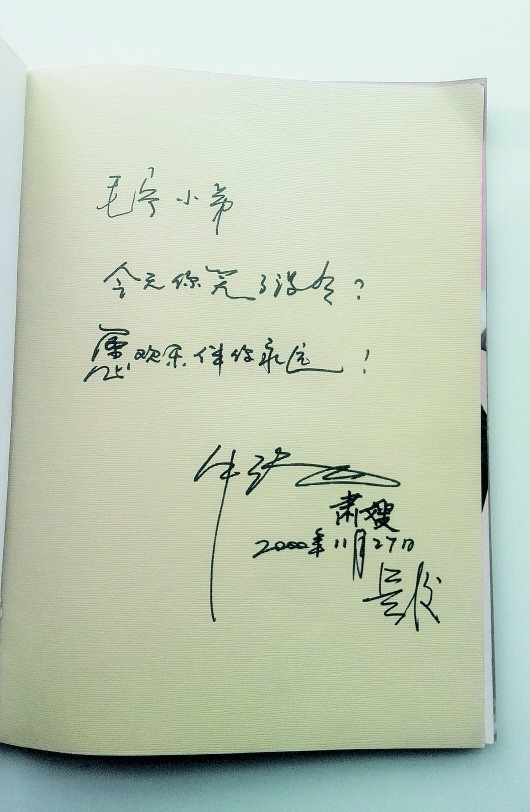 毛宁小弟
今天你笑了没有？
愿欢乐伴你永远！
2000年11月27日